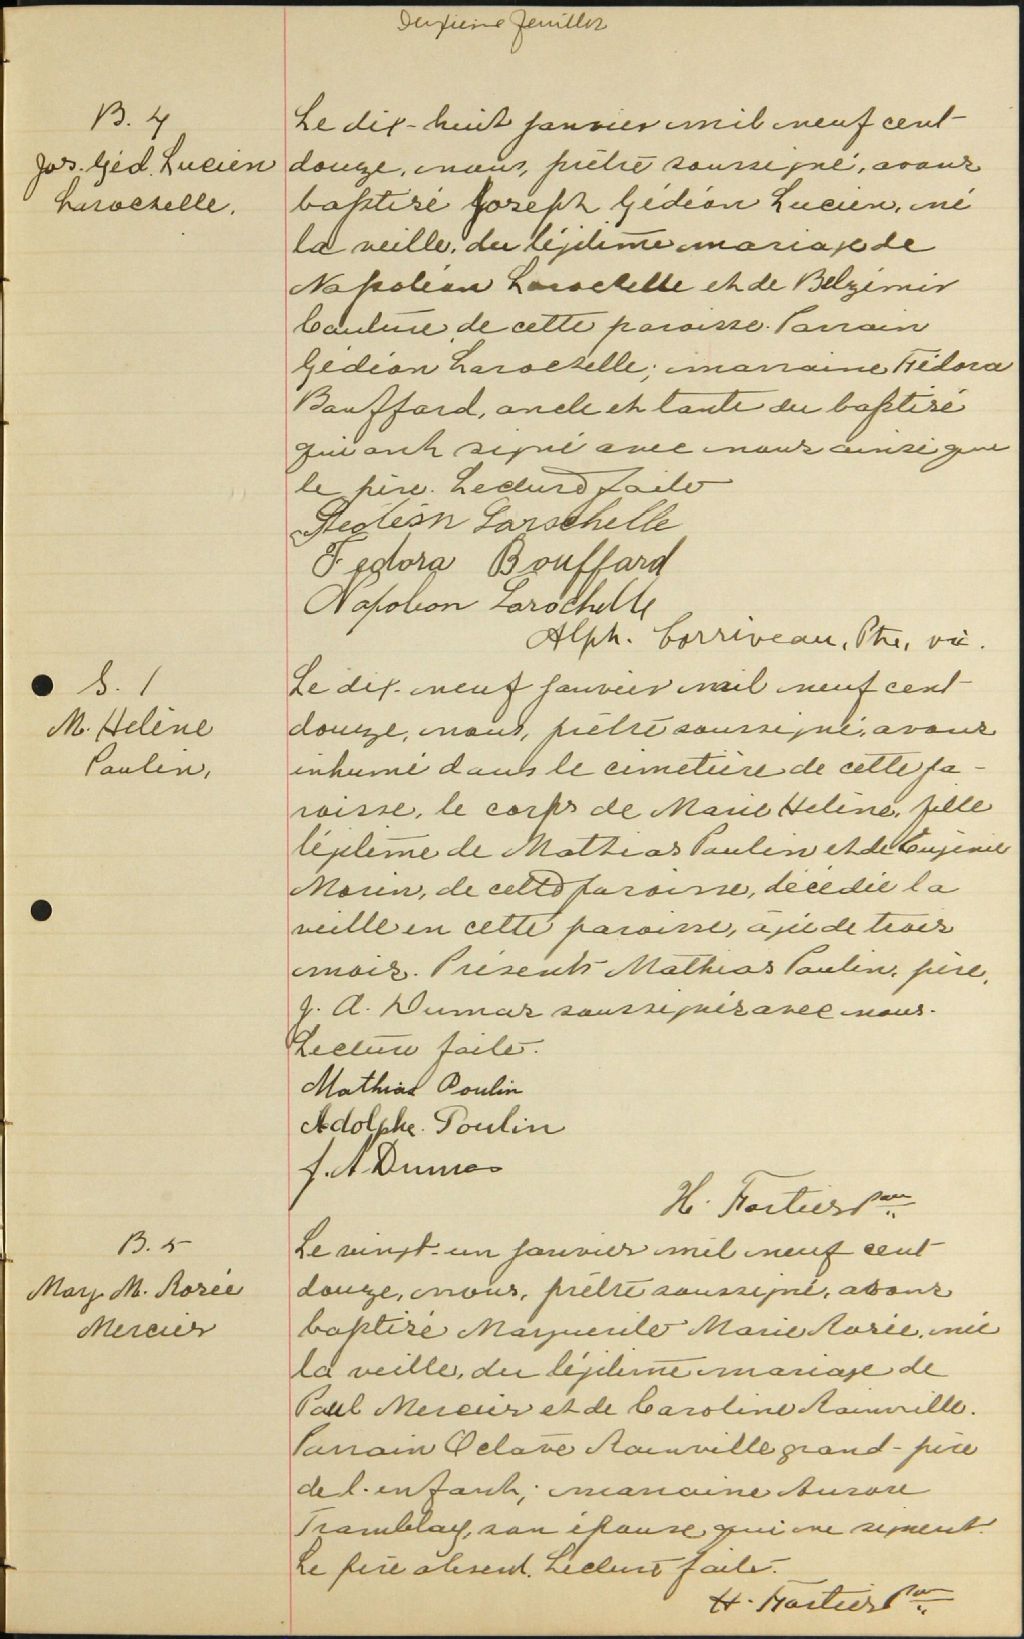 Deuxième feuillet
B. 4
Jos. Géd. Lucien
Larochelle.
Le dix-huit janvier mil neuf cent
douze, nous, prêtre soussigné, avons
baptisé Joseph Gédéon Lucien, né
la veille, du légitime mariage de
Napoléon Larochelle et de Belzémir
Couture de cette paroisse. Parrain
Gédéon Larochelle; marraine Fédora
Bouffard, oncle et tante du baptisé
qui ont signé avec nous ainsi que
le père. Lecture faite
Gedéon Larochelle
Fedora Bouffard
Napoleon Larochelle
Alph. Corriveau, Ptre, vic.
S. 1
M. Helène
Poulin,
Le dix-neuf janvier mil neuf cent
douze, nous, prêtre soussigné, avons
inhumé dans le cimetière de cette pa-
roisse, le corps de Marie Helène, fille
légitime de Mathias Poulin et de Eugénie
Morin, de cette paroisse, décédée la
veille en cette paroisse, âgée de trois
mois. Présents Mathias Poulin, père,
J. A. Dumas soussignés avec nous.
Lecture faite.
Mathias Poulin
Adolphe Poulin
J. A Dumas
H. Fortier Ptre
B. 5
Marg. M. Rosée
Mercier
Le vingt-un janvier mil neuf cent
douze, nous, prêtre soussigné, avons
baptisé Marguerite Marie Rosée, née
la veille, du légitime mariage de
Paul Mercier et de Caroline Rainville.
Parrain Octave Rainville grand-père
de l'enfant; marraine Aurore
Tramblay, son épouse qui ne signent.
Le père absent. Lecture faite.
H. Fortier Ptre